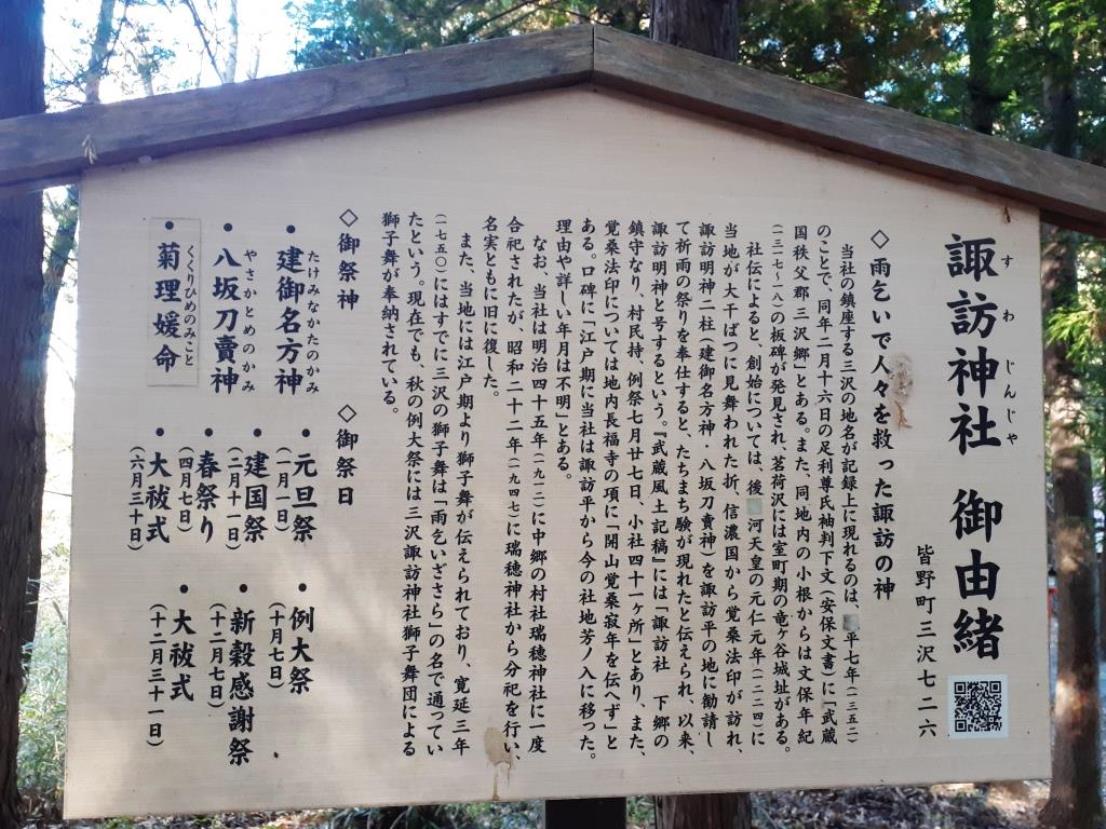 諏訪神社 御由緒
すわ じんじゃ
皆野町三沢七二六
◇雨乞いで人々を救った諏訪の神
当社の鎮座する三沢の地名が記録上に現れるのは、平七年(一三五二)
のことで、同年二月十六日の足利尊氏袖判下文(安保文書)に「武蔵
国秩父郡三沢郷」とある。また、同地内の小根からは文保年紀
(一三一七〜一八)の板碑が発見され、茗荷沢には室町期の竜ヶ谷城址がある。
社伝によると、創始については、後河天皇の元仁元年(一二二四)に
当地が大干ばつに見舞われた折、信濃国から覚桑法印が訪れ、
諏訪明神二柱(建御名方神・八坂刀賣神)を諏訪平の地に勧請し
て祈雨の祭りを奉仕すると、たちまち験が現れたと伝えられ、以来、
諏訪明神と号するという。『武蔵風土記稿』には「諏訪社 下郷の
鎮守なり、村民持、例祭七月廿七日、小社四十一ヶ所」とあり、また、
覚桑法印については地内長福寺の項に「開山覚桑寂年を伝へず」と
ある。口碑に「江戸期に当社は諏訪平から今の社地芳ノ入に移った。
理由や詳しい年月は不明」とある。
なお、当社は明治四十五年(一九一二)に中郷の村社瑞穂神社に一度
合祀されたが、昭和二十二年(一九四七)に瑞穂神社から分祀を行い、
名実ともに旧に復した。
また、当地には江戸期より獅子舞が伝えられており、寛延三年
(一七五〇)にはすでに三沢の獅子舞は「雨乞いざさら」の名で通ってい
たという。現在でも、秋の例大祭には三沢諏訪神社獅子舞団による
獅子舞が奉納されている。
◇御祭神
・建御名方神
たけみなかたのかみ
・八坂刀賣神
やさかとめのかみ
・菊理媛命
くくりひめのみこと
◇御祭日
・元旦祭
(一月一日)
・建国祭
(二月十一日)
・春祭り
(四月七日)
・大祓式
(六月三十日)
・例大祭
(十月七日)
・新穀感謝祭
(十二月七日)
・大祓式
(十二月三十一日)